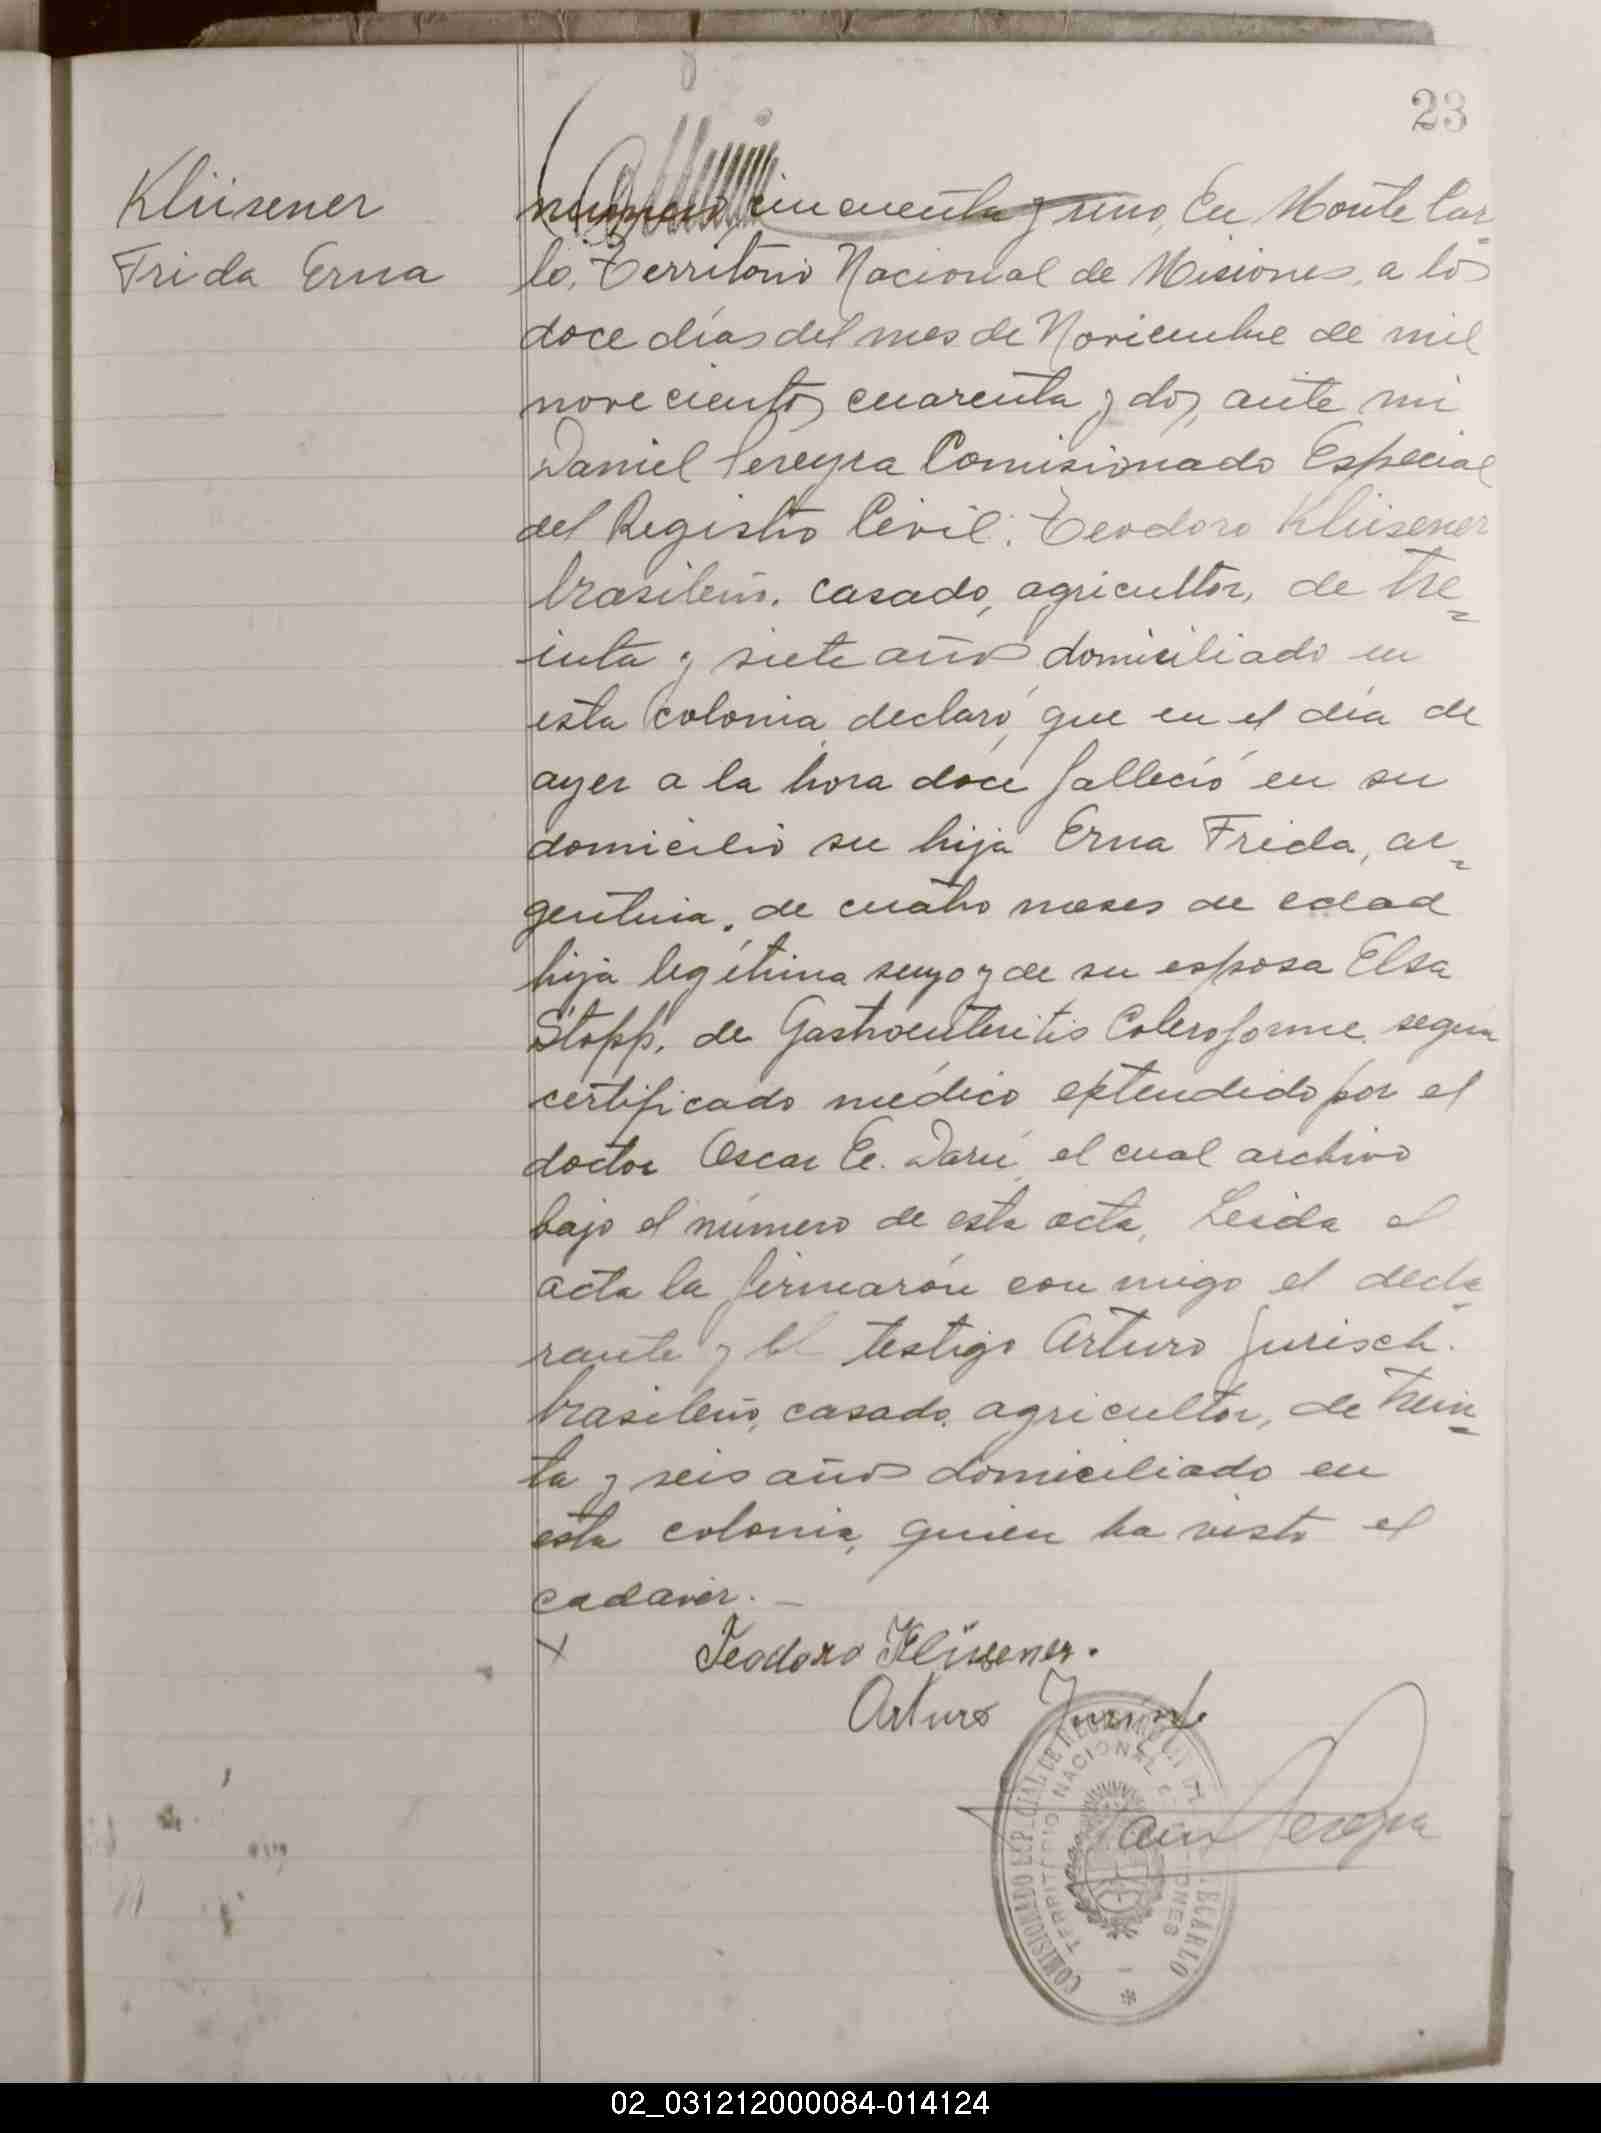 23
Klüsener
Frida Erna
numero cincuenta y uno, En Monte Car=
lo, Territorio Nacional de Misiones, a los
doce días del mes de Noviembre de mil
novecientos cuarenta y dos, ante mi
Daniel Pereyra Comisionado Especial
del Registro Civil: Teodoro Klüsener
brasileño, casado, agricultor, de tre=
inta y siete años domiciliado en
esta colonia, declaró, que en el día de
ayer a la hora doce falleció en su
domicilio su hija Erna Frida, ar=
gentina, de cuatro meses de edad
hija legítima suyo y de su esposa Elsa
Stopp, de Gastroenteritis Coleroforme, segun
certificado médico extendido por el
doctor Oscar E. Darú, el cual archivo
bajo el número de esta acta, Leida el
acta la firmarón con migo el decla
rante y el testigo Arturo Jurisch.
brasileño, casado, agricultor, de trein=
ta y seis años domiciliado en
esta colonia, quien ha visto el
cadaver. —
x Teodoro Klüsener.
Arturo
Pereyra
COMISIONADO ESPECIAL DE
TERRITORIO NACIONAL
02_031212000084-014124